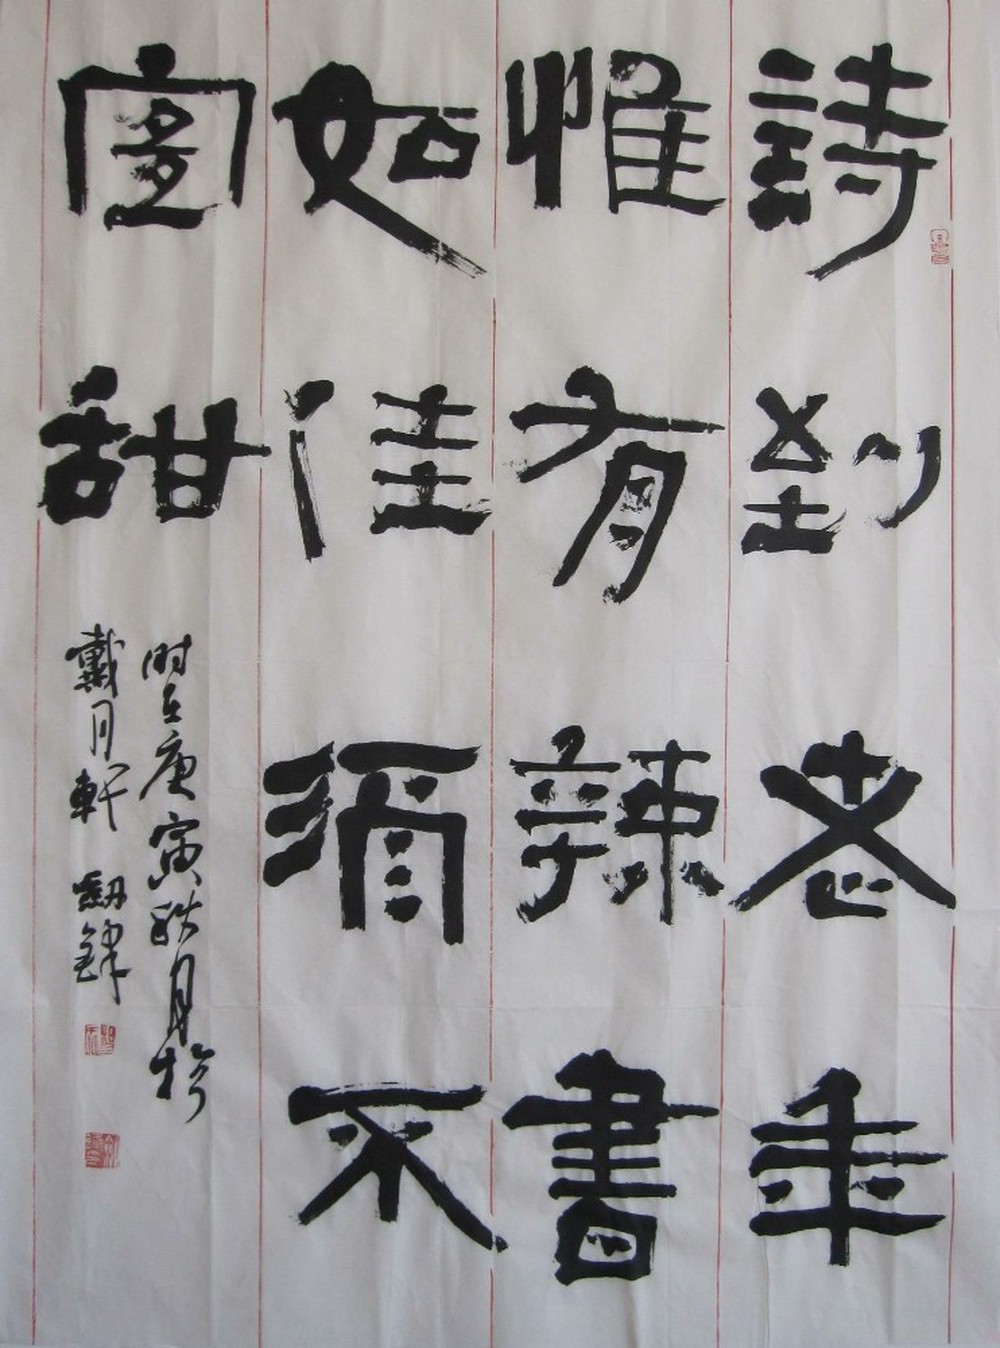 詩到老年
惟有辣書
如佳酒不
宜甜
時在庚寅秋月於
戴月軒 劍鋒